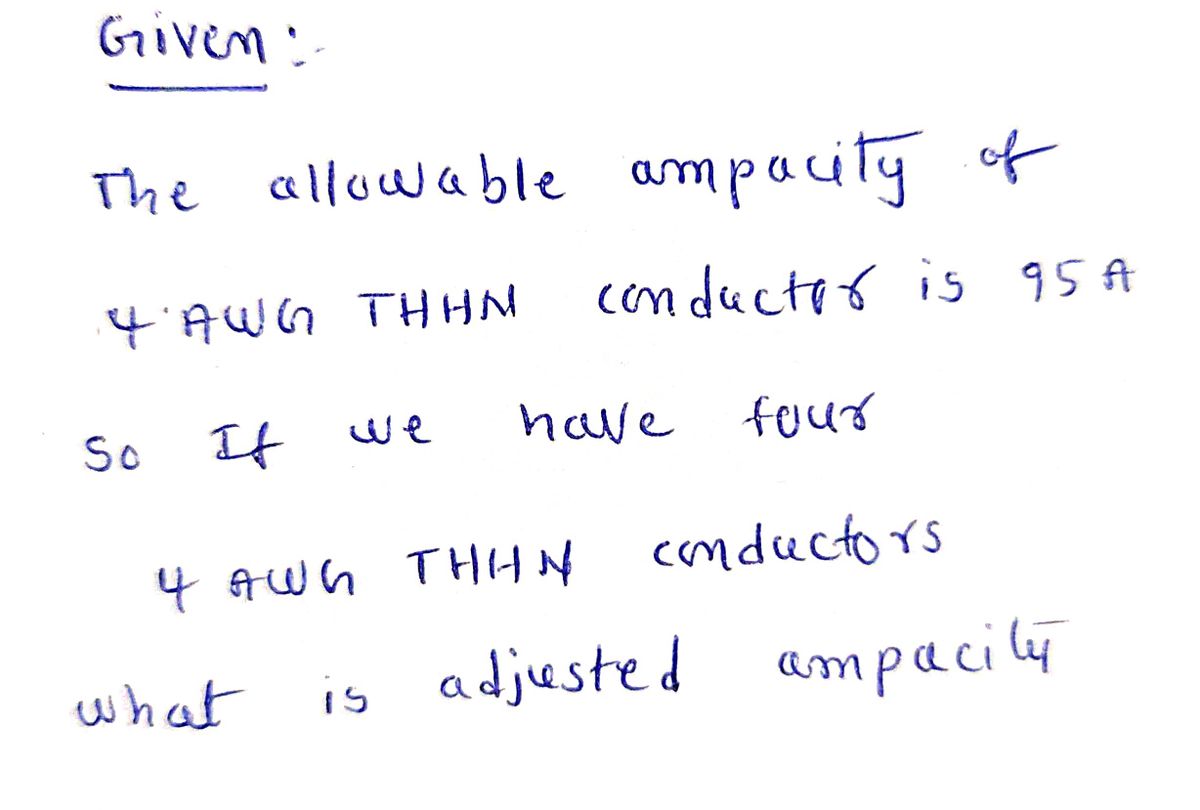 Given :-
The allowable ampacity of
4 AWG THHN conductor is 95 A
So If we have four
4 AWG THHN conductors
what is adjusted ampacity